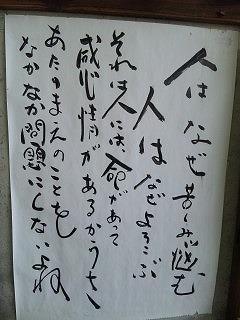 人はなぜ苦しみ悩む
人はなぜよろこぶ
それは人には命があって
感じ情があるからさ
あたりまえのことを
なかなか問題にしないよね